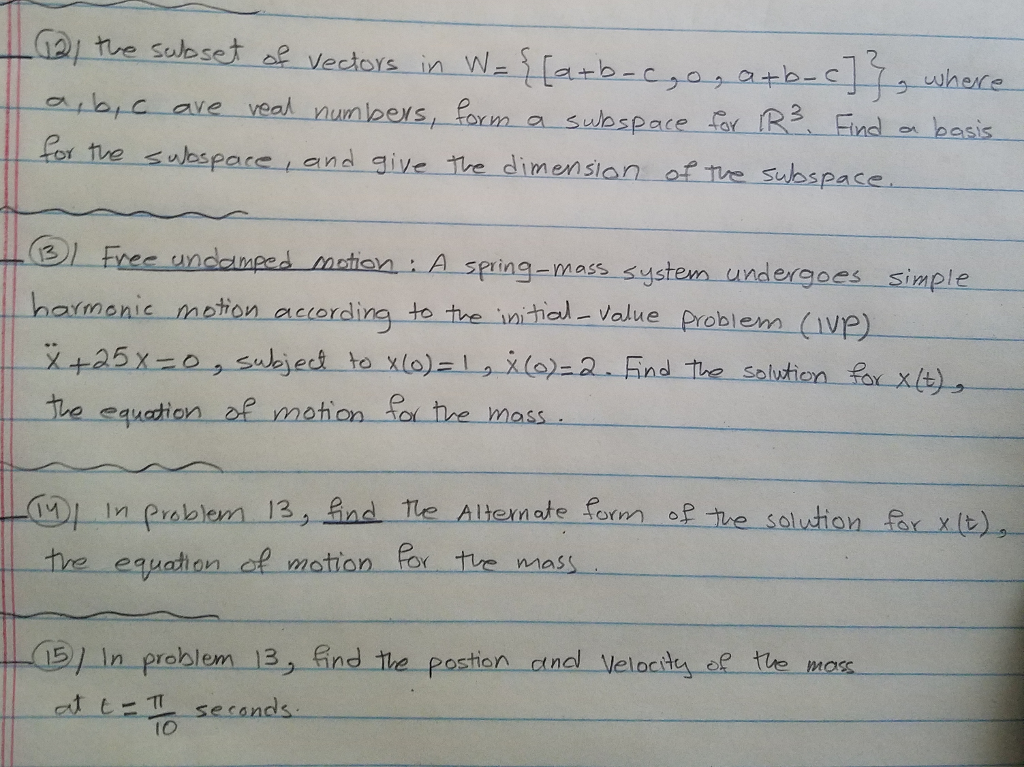 (12)/ the subset of vectors in W = {[a+b-c, 0, a+b-c]}, where
a, b, c are real numbers, form a subspace for ℝ³. Find a basis
for the subspace, and give the dimension of the subspace.
(13)/ Free undamped motion: A spring-mass system undergoes simple
harmonic motion according to the initial-value problem (IVP)
ẍ + 25x = 0, subject to x(0) = 1, ẋ(0) = 2. Find the solution for x(t),
the equation of motion for the mass.
(14)/ In problem 13, find the Alternate form of the solution for x(t),
the equation of motion for the mass.
(15)/ In problem 13, find the postion and velocity of the mass
at t = π/10 seconds.